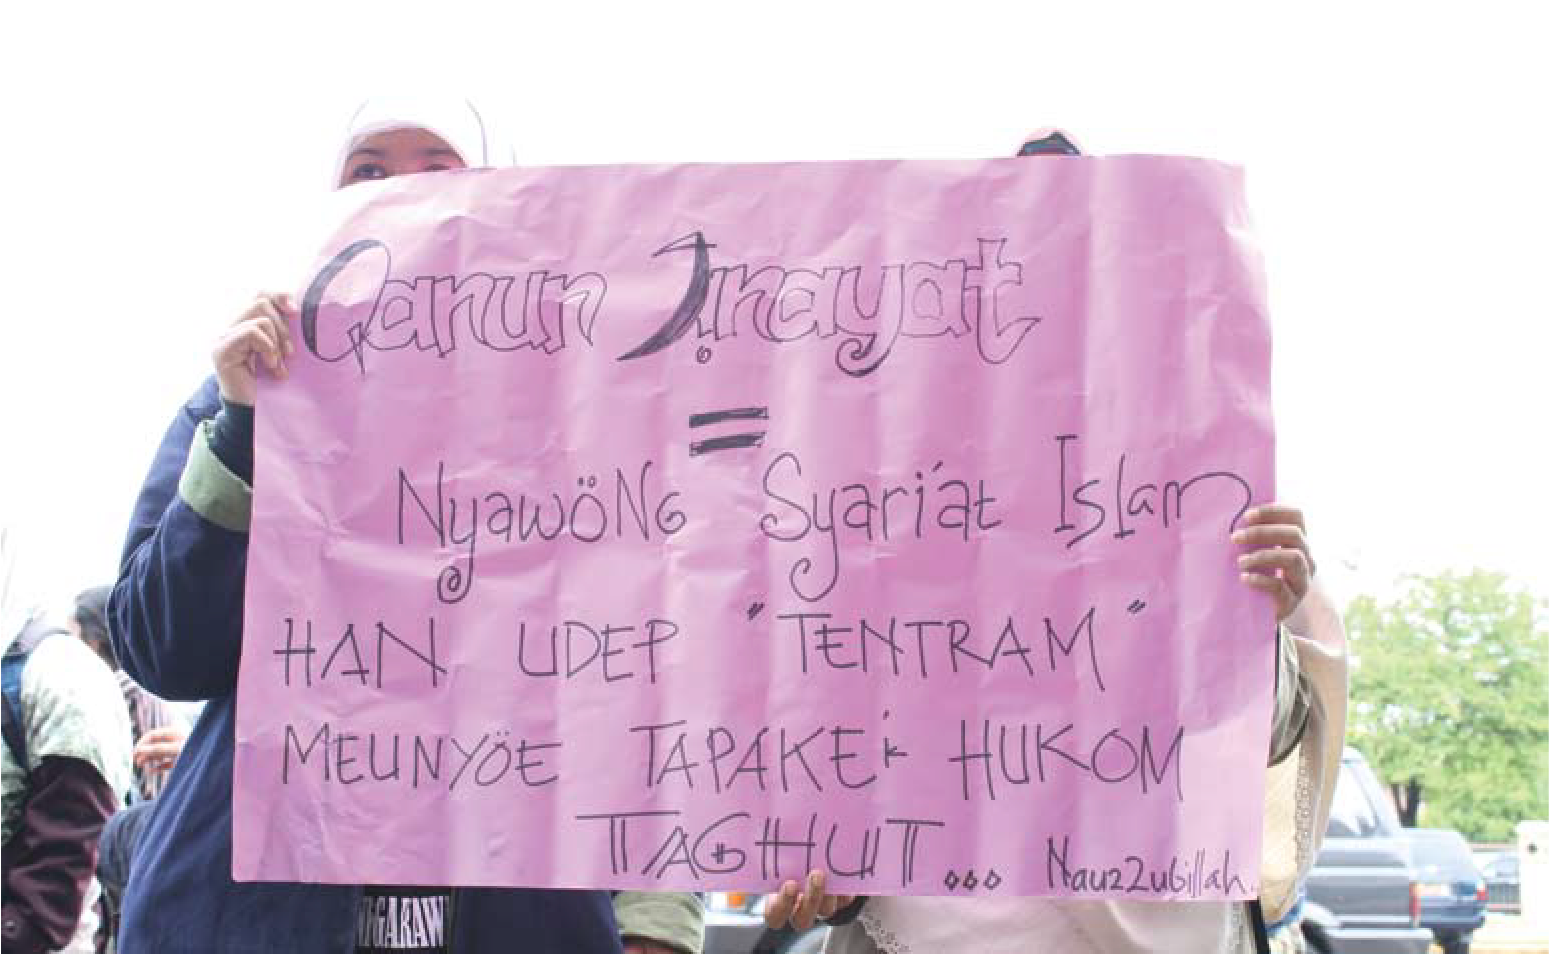 Qanun Jinayat
=
Nyawöng Syari'at Islam
HAN UDEP "TENTRAM"
MEUNYÖE TAPAKEk HUKOM
TAGHUT... Nauzzubillah.
NIGARAW